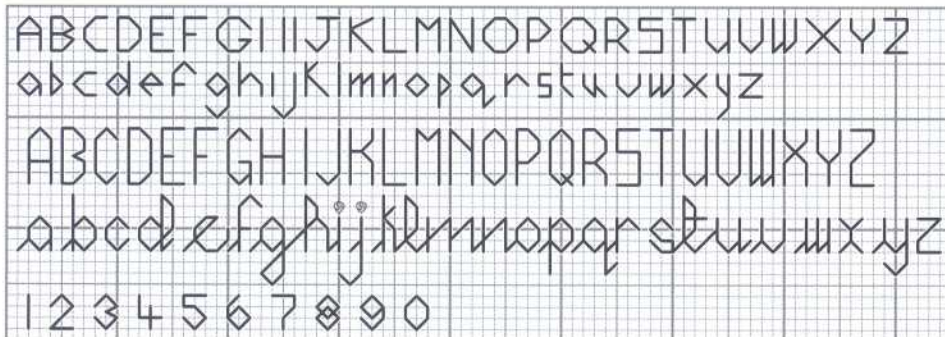 A B C D E F G H I J K L M N O P Q R S T U V W X Y Z
a b c d e f g h i j k l m n o p q r s t u v w x y z
A B C D E F G H I J K L M N O P Q R S T U V W X Y Z
a b c d e f g h i j k l m n o p q r s t u v w x y z
1 2 3 4 5 6 7 8 9 0